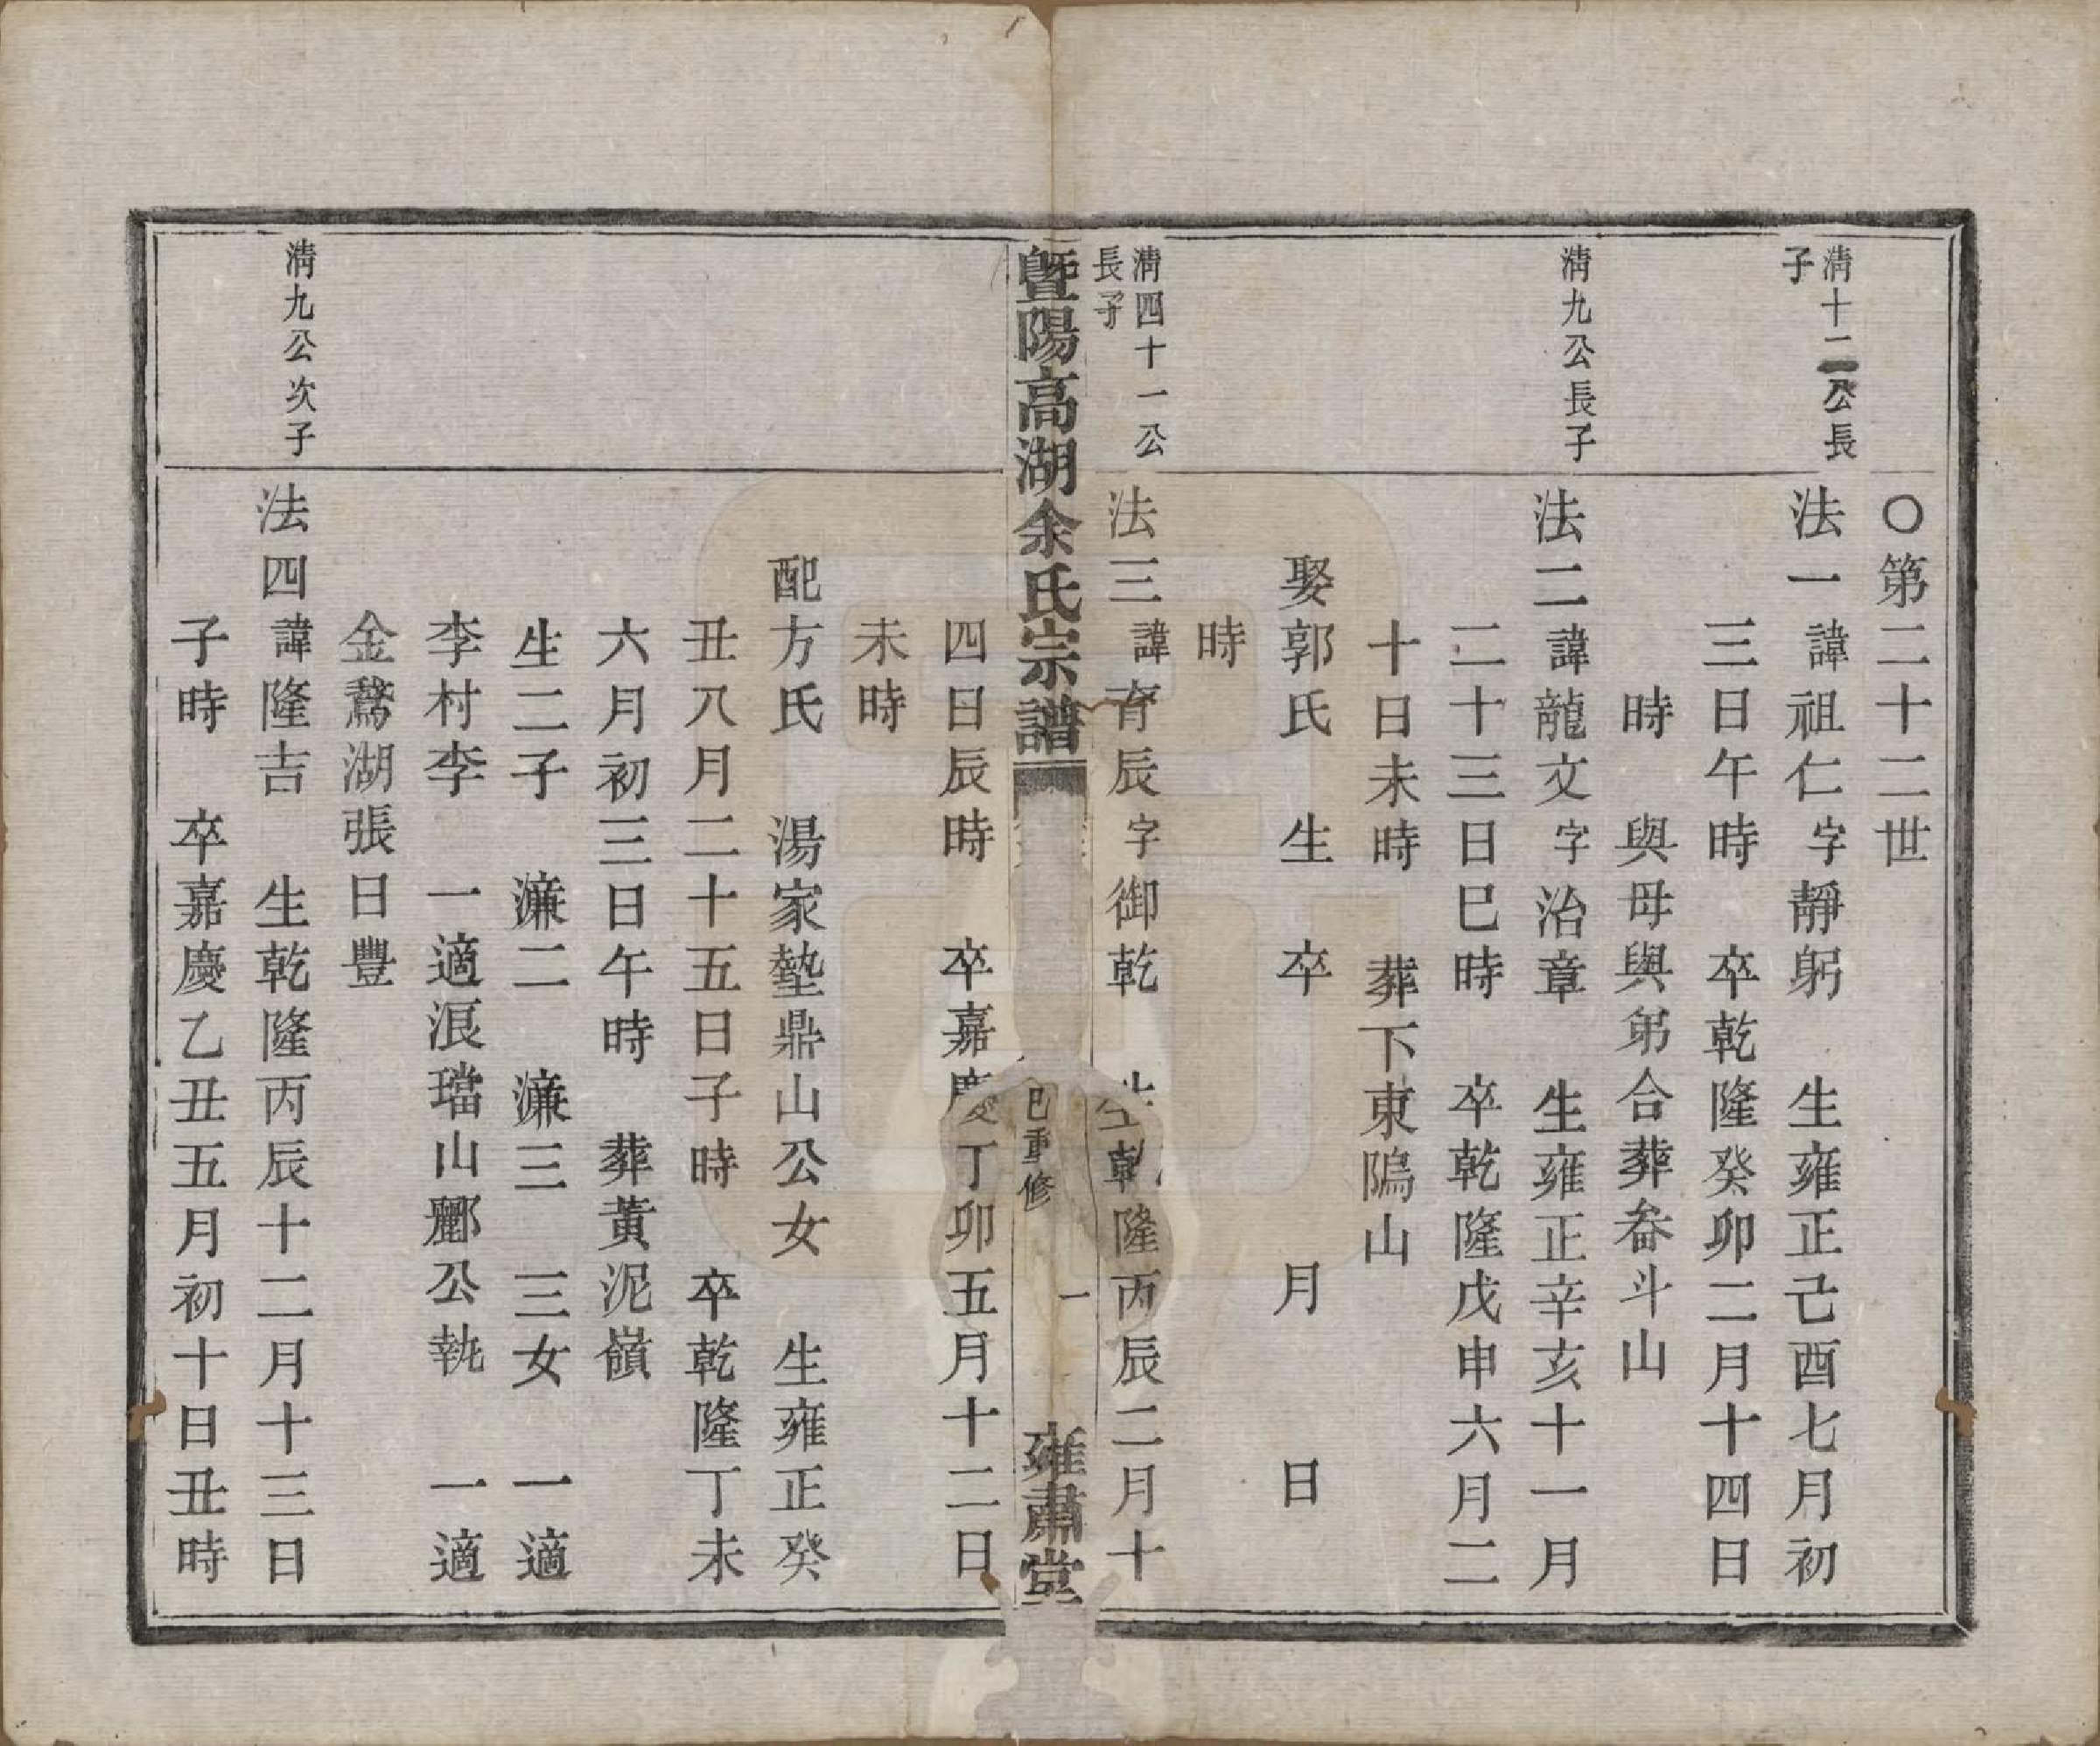 ○第二十二世
淸十二公長
子
法一諱祖仁字靜躬　生雍正己酉七月初
三日午時　卒乾隆癸卯二月十四日
時　與母與弟合葬畚斗山
淸九公長子
法二諱龍文字治章　生雍正辛亥十一月
二十三日巳時　卒乾隆戊申六月二
十日未時　葬下東隖山
娶郭氏　生　卒　　　　月　　日
時
淸四十一公
長子
法三諱育辰字御乾　生乾隆丙辰二月十
暨陽高湖余氏宗譜
巳重修
一
雍肅堂
四日辰時　卒嘉慶丁卯五月十二日
未時
配方氏　湯家墊鼎山公女　生雍正癸
丑八月二十五日子時　卒乾隆丁未
六月初三日午時　葬黃泥嶺
生二子　濂二　濂三　三女　一適
李村李　一適浪璫山酈公執　一適
金鶩湖張日豐
淸九公次子
法四諱隆吉　生乾隆丙辰十二月十三日
子時　卒嘉慶乙丑五月初十日丑時